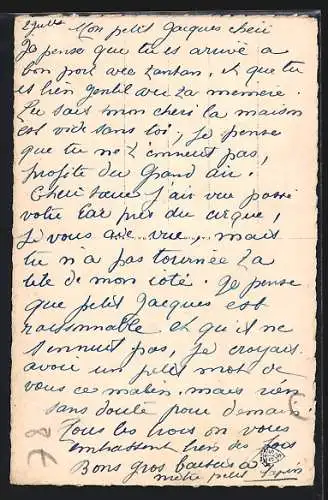 2 Juillet Mon petit Jacques chéri
Je pense que tu es arrivé a
bon port avec tantan, et que tu
es bien gentil avec ta memere.
Tu sais mon cheri la maison
est vide sans toi, je pense
que tu ne t'ennuit pas,
profite du Grand air.
Cheri sœur j'ai vu passé
votre car près du cirque,
je vous aie vue, mais
tu n'a pas tournée ta
tete de mon coté. Je pense
que petit Jacques est
raisonnable et qu'il ne
s'ennuit pas, je croyais
avoir un petit mot de
vous ce matin, mais rien
sans doute pour demain.
Tous les trois on vous
embrassent bien des fois
Bons gros baisers a
notre petit